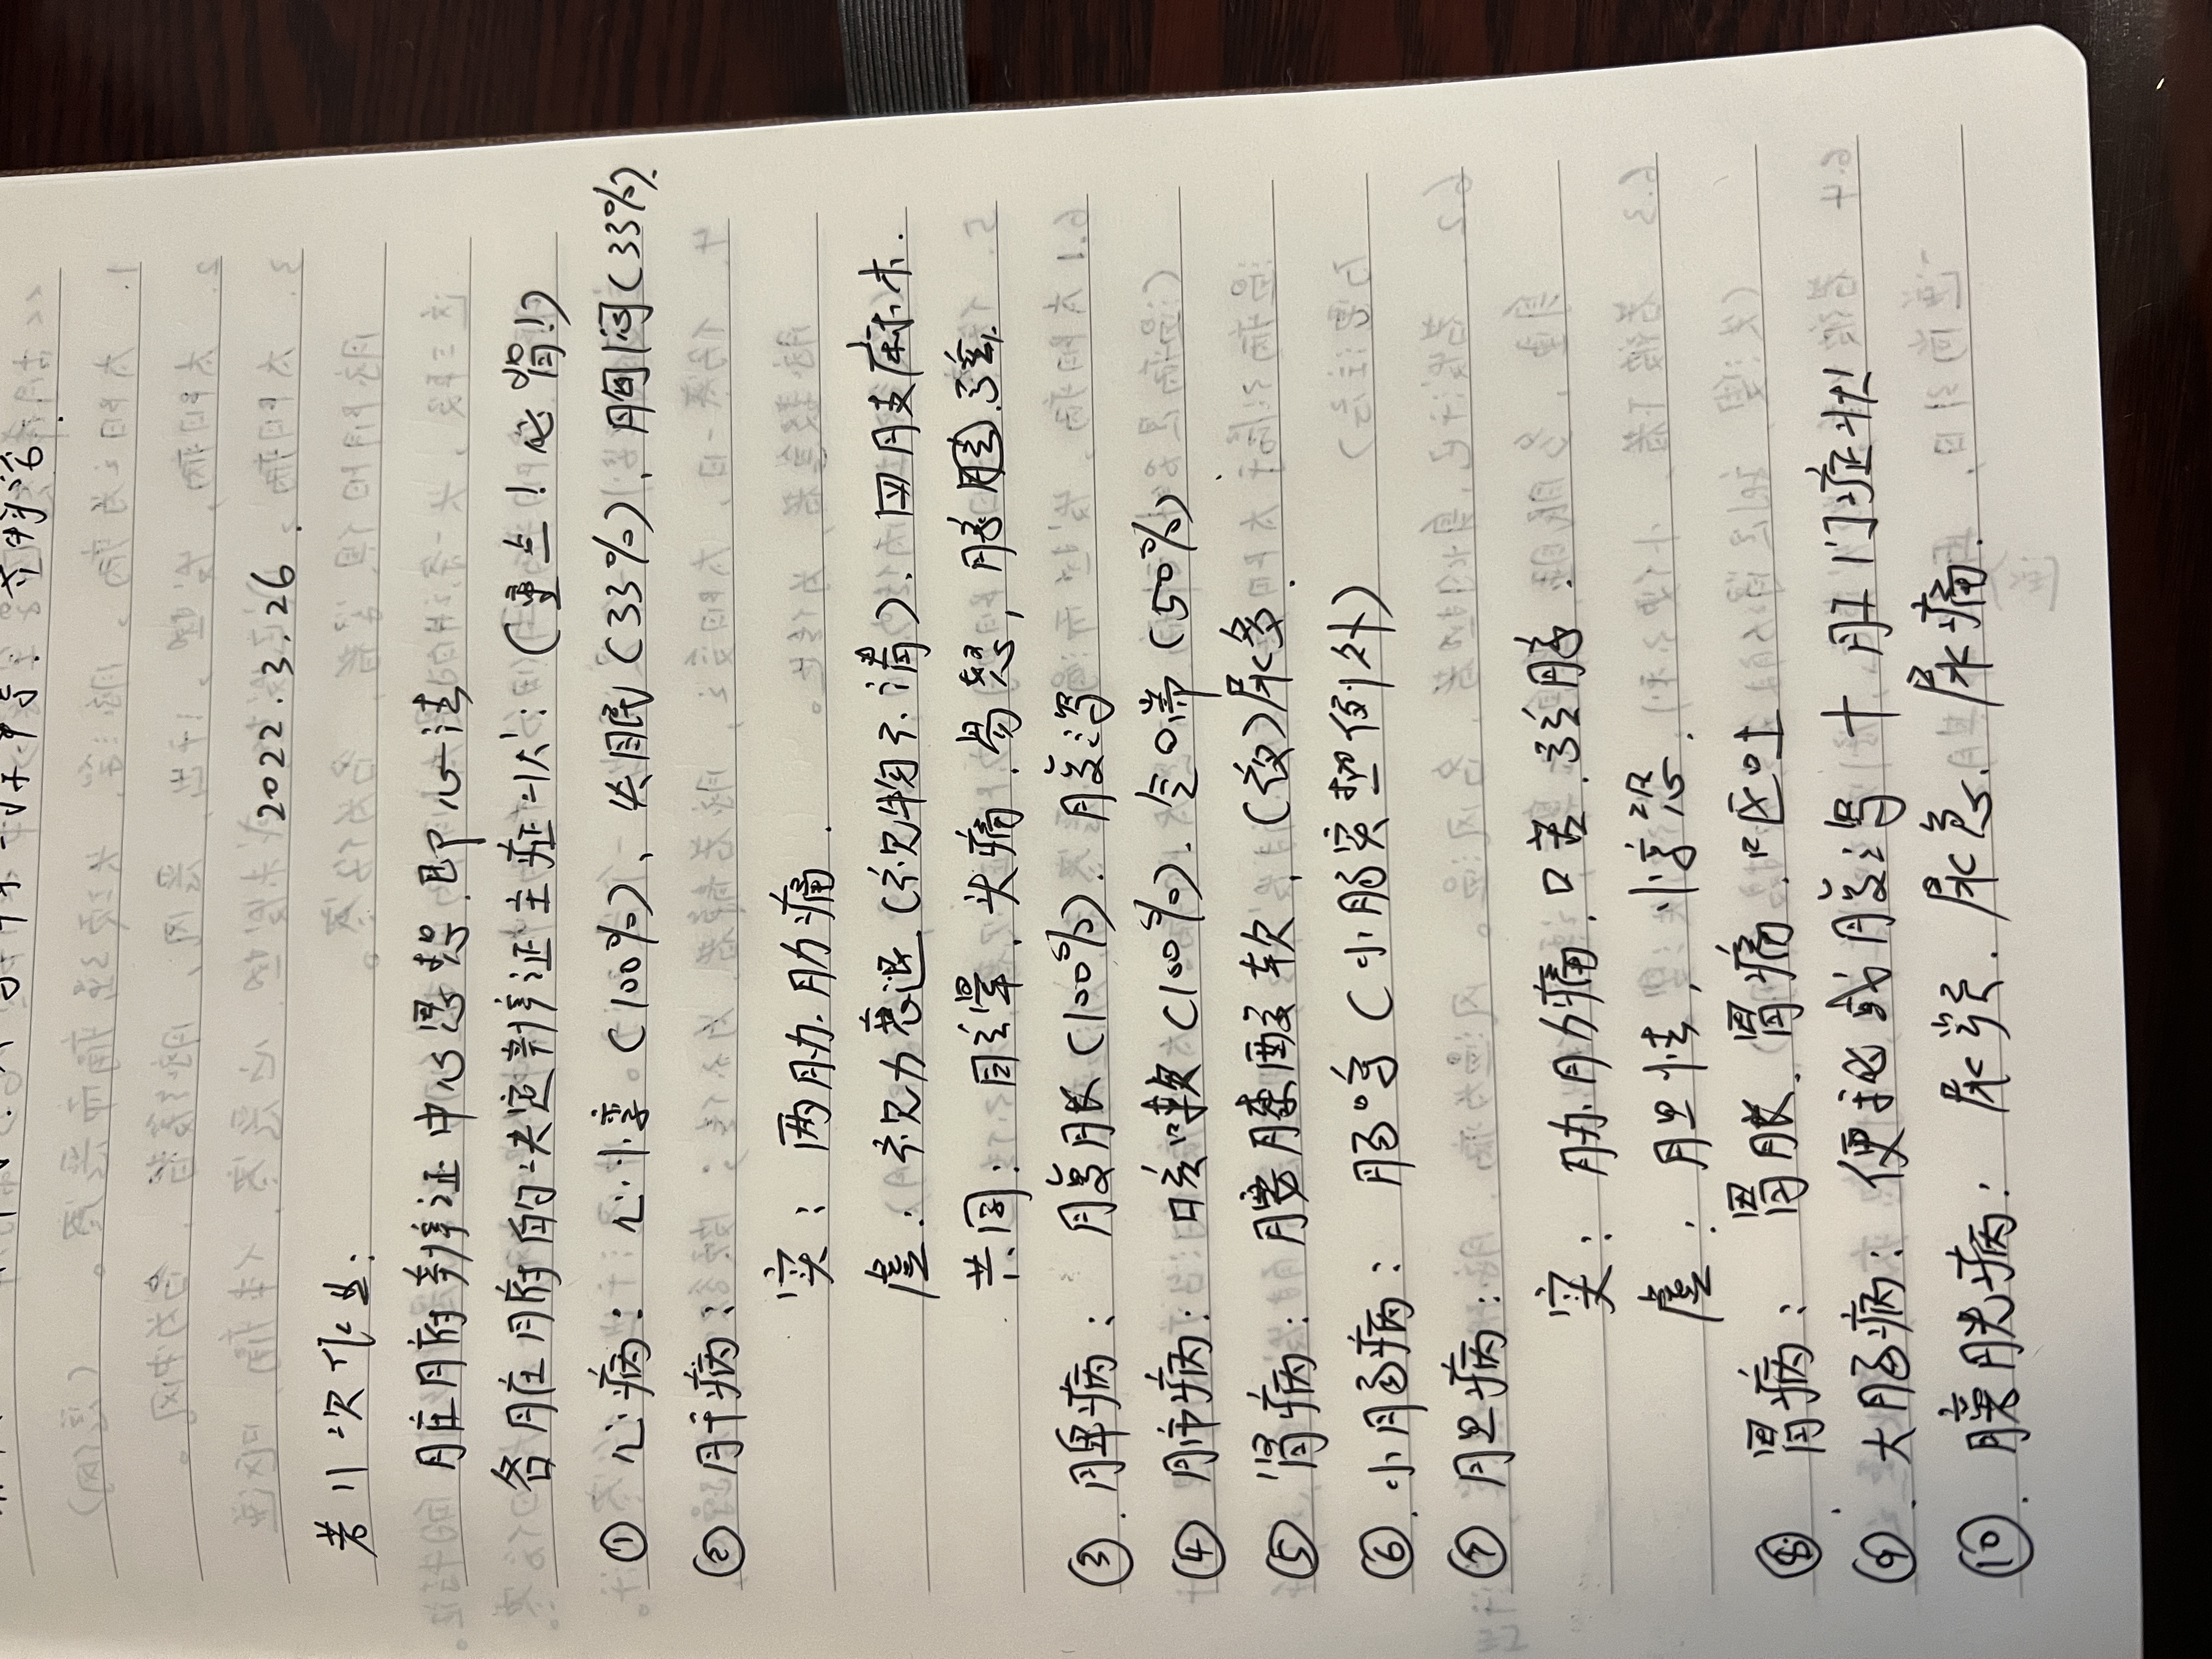 2022.3.26
第11次作业:
脏腑辨证中心思想.即心法
各脏腑的决定辨证主症状:(重点!必背!)
① 心病: 心悸(100%)、失眠(33%)、胸闷(33%).
② 肝病:
实: 两胁肋痛.
虚: 视力衰退(视物不清). 四肢麻木.
共同: 目眩晕. 头痛. 易怒,
③. 脾病: 腹胀(100%). 腹泻
④ 肺病: 咳嗽(100%). 气喘(50%)
⑤ 肾病: 腰膝酸软. (夜)尿多.
⑥. 小肠病: 肠鸣(小肠实热例外)
⑦ 胆病:
实: 胁肋痛. 口苦.
虚: 胆怯, 惊恐.
⑧. 胃病: 胃胀. 胃痛. 呕吐
⑨. 大肠病: 便秘或腹泻 + 肛门症状
⑩. 膀胱病: 尿频. 尿急. 尿痛.